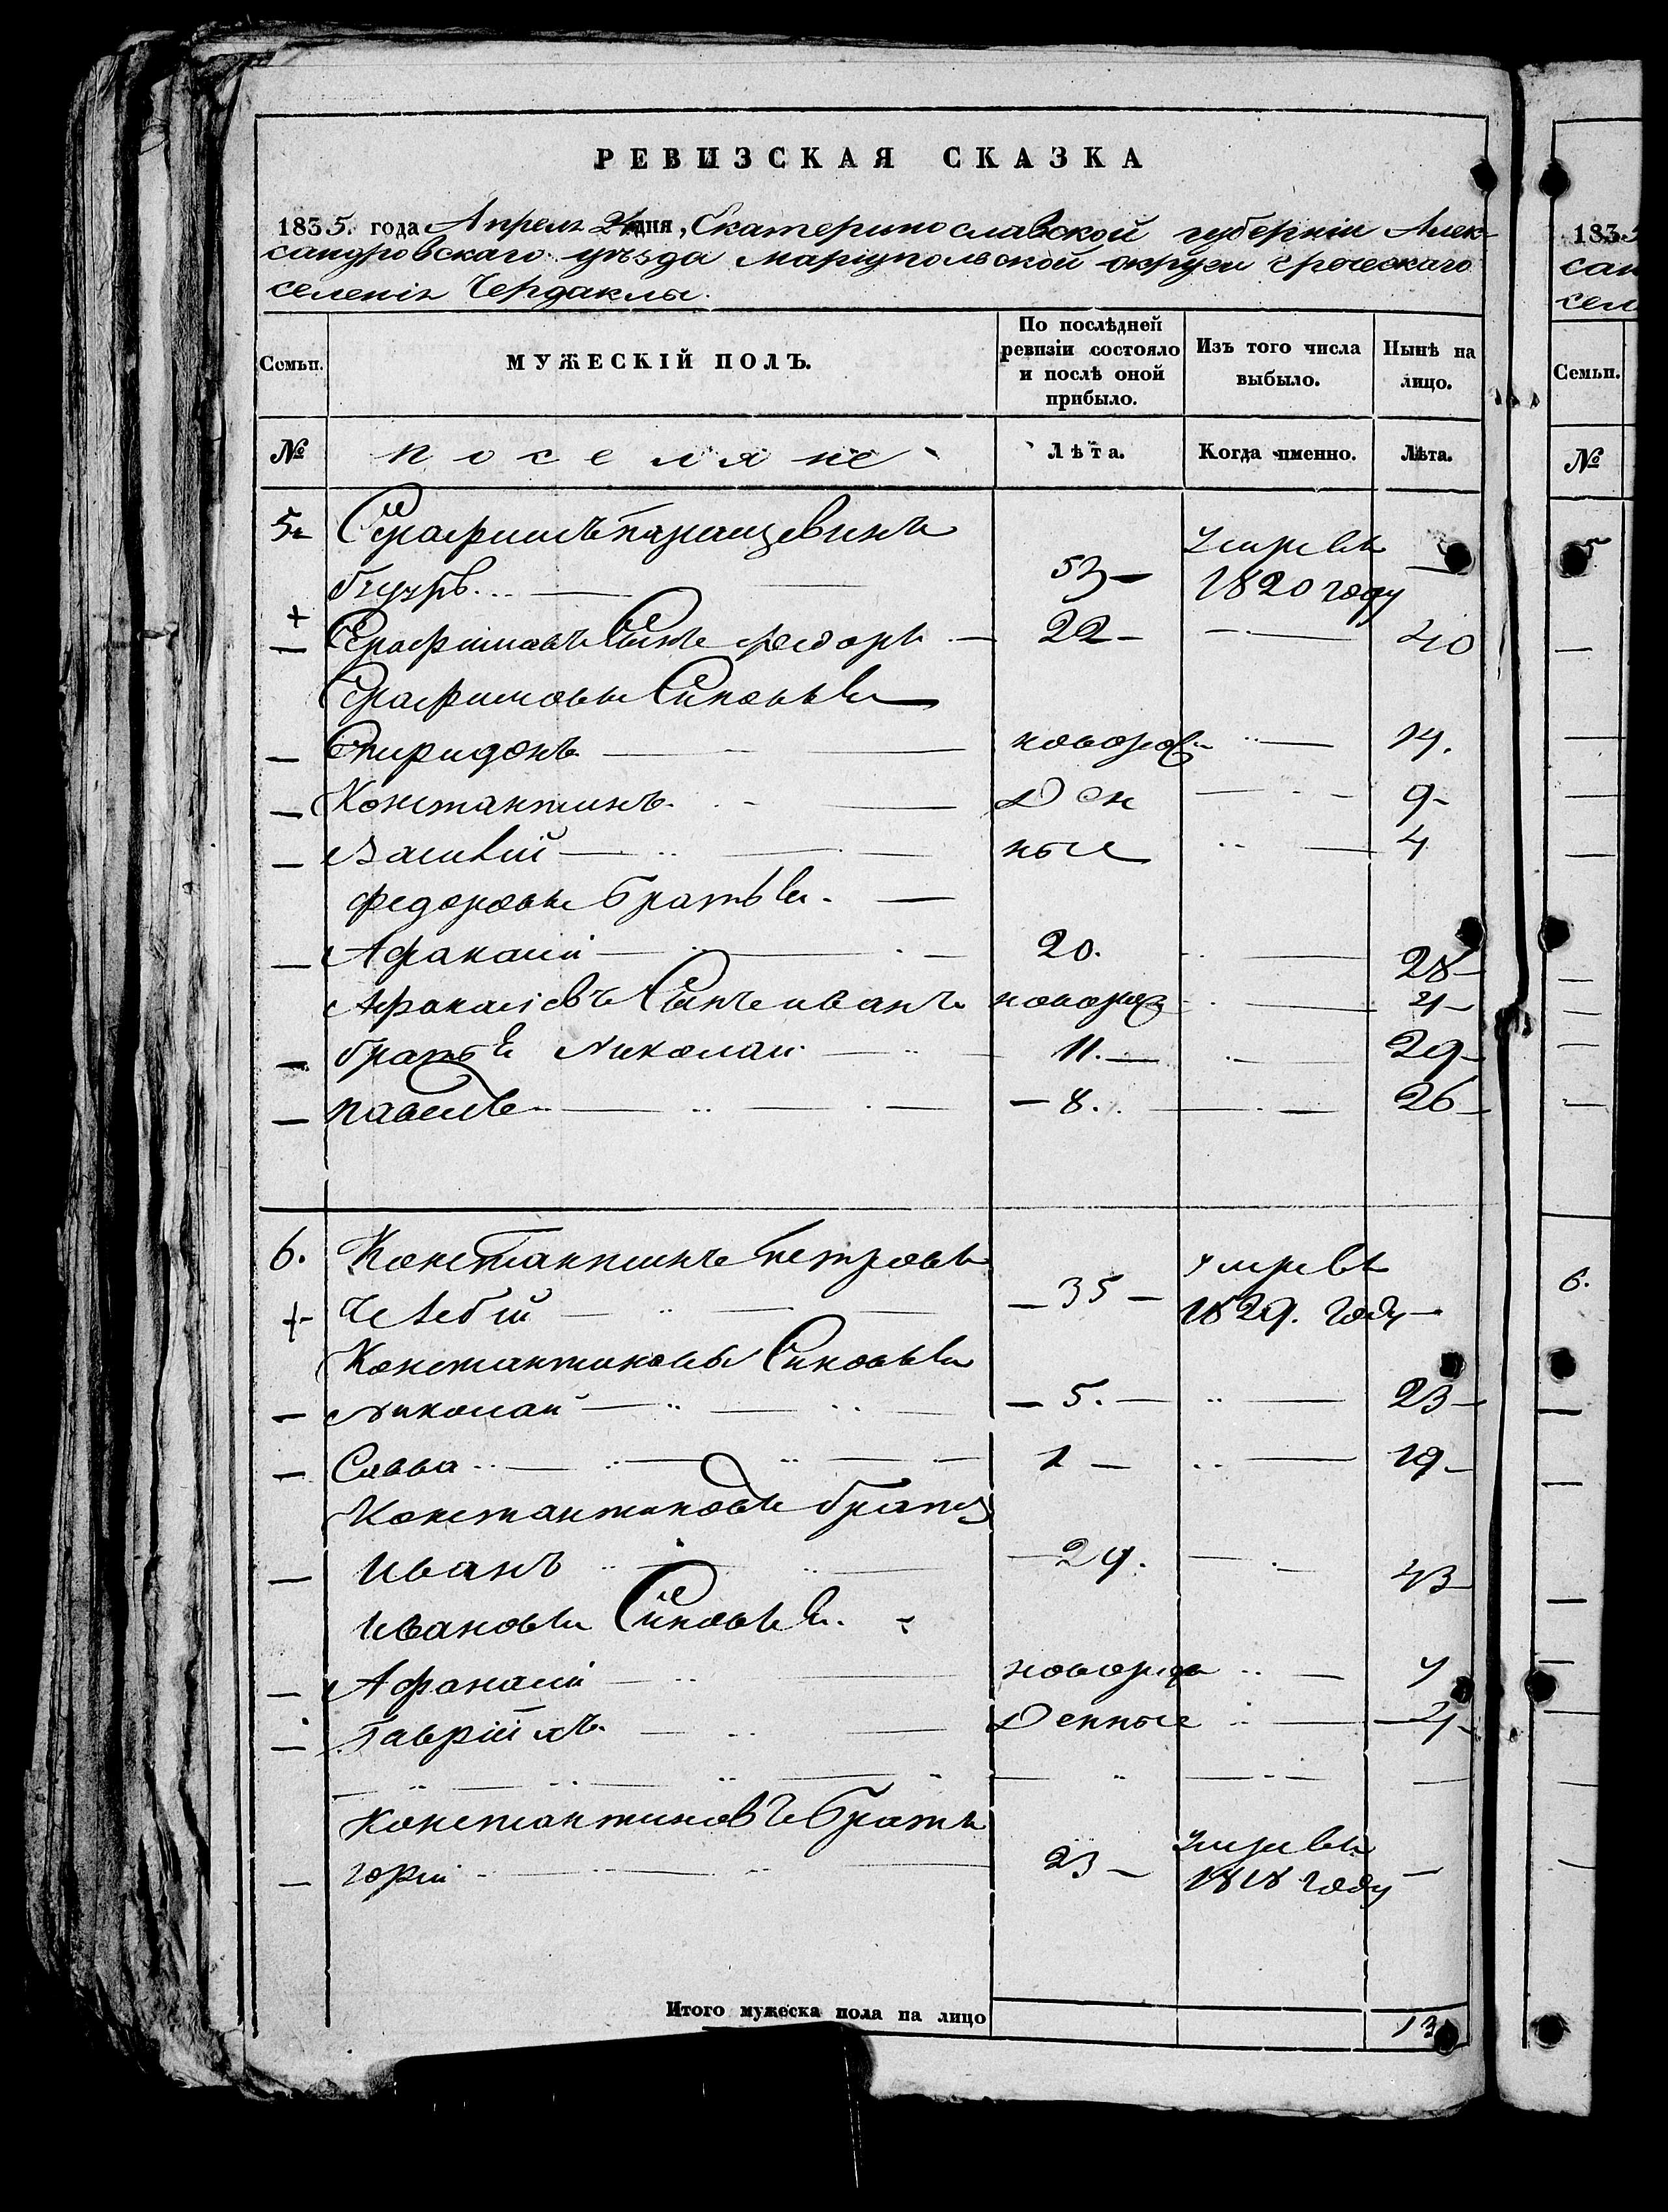 РЕВИЗСКАЯ СКАЗКА
1835. года Апреля 24 дня, Екатеринославской губерніи Алек-
сандровскаго уѣзда Маріупольской округи греческаго
селенія Чердаклы.
Семьи. МУЖЕСКІЙ ПОЛЪ. По послѣдней ревизіи состояло и послѣ оной прибыло. Изъ того числа выбыло. Нынѣ на лицо.
№ поселяне Лѣта. Когда именно. Лѣта.
5. Серафимъ
53 умре въ 1820 году
Серафимовъ Сынъ федоръ 22 40
Серафимовы Синовьи
Спиридонъ новорож 14.
Константинъ ден 9
Василій ные 4
федоровы братьи
Афанасий 20. 28
Афанасіевъ Сынъ иванъ новорож
братъ Николай 11. 29
павелъ 8. 26
6. Константинъ петровъ
Челебій 35 умре въ 1829. году
Константиновы Синовьи
Николай 5. 23
Савва 1 19
Константиновъ братъ
иванъ 43
ивановы Синовьи.
Афанасий новорож
гавріилъ денные
Константиновъ братъ
юрий 23 умре въ 1818 году
Итого мужеска пола на лицо 13
183
сан
сел
Семьи.
№
5
6.